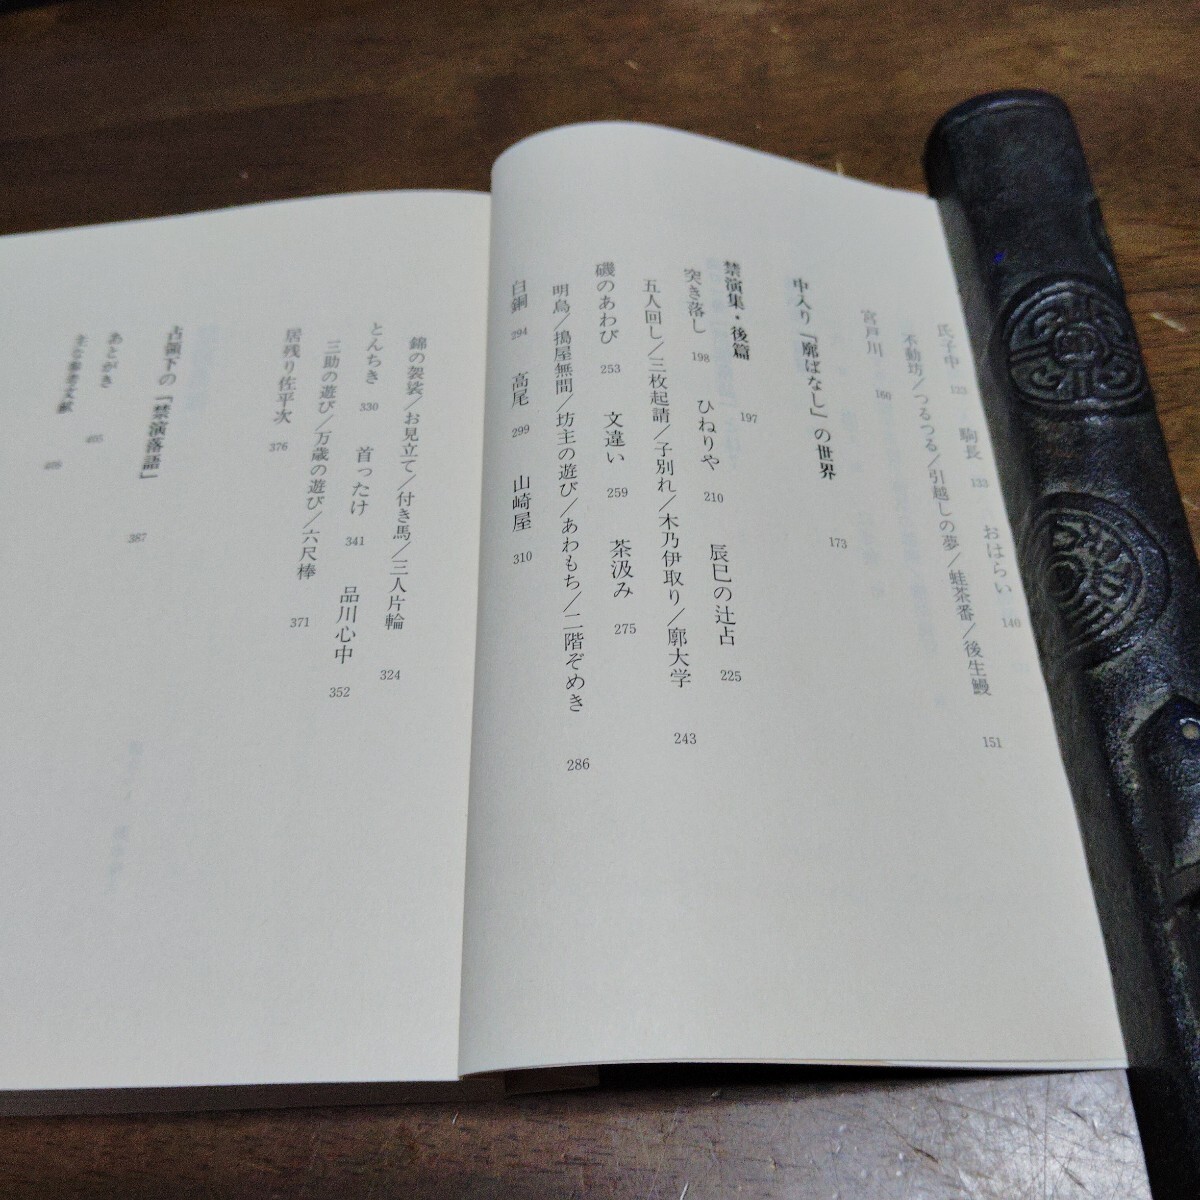 氏子中 123 駒長 133 おはらい 140
不動坊/つるつる/引越しの夢/蛙茶番/後生鰻 151
宮戸川 160
中入り『廓ばなし』の世界 173
禁演集・後篇 197
突き落し 198 ひねりや 210 辰巳の辻占 225
五人回し/三枚起請/子別れ/木乃伊取り/廓大学 243
磯のあわび 253 文違い 259 茶汲み 275
明烏/搗屋無間/坊主の遊び/あわもち/二階ぞめき 286
白銅 294 高尾 299 山崎屋 310
錦の袈裟/お見立て/付き馬/三人片輪 324
とんちき 330 首ったけ 341 品川心中 352
三助の遊び/万歳の遊び/六尺棒 371
居残り佐平次 376
占領下の「禁演落語」 387
あとがき 405
主な参考文献 408